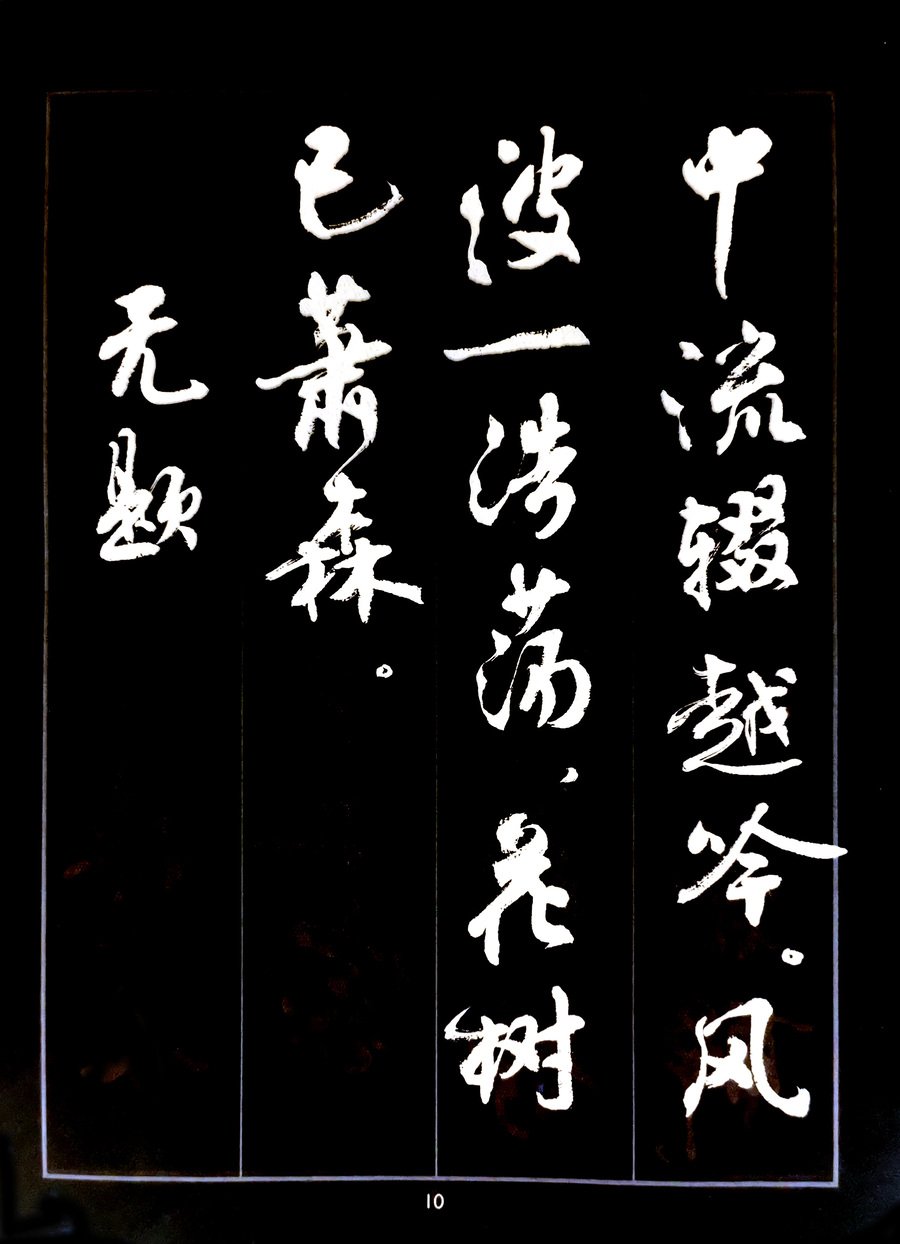 中流辍越吟。风
波一浩荡，花树
已萧森。
无题
10